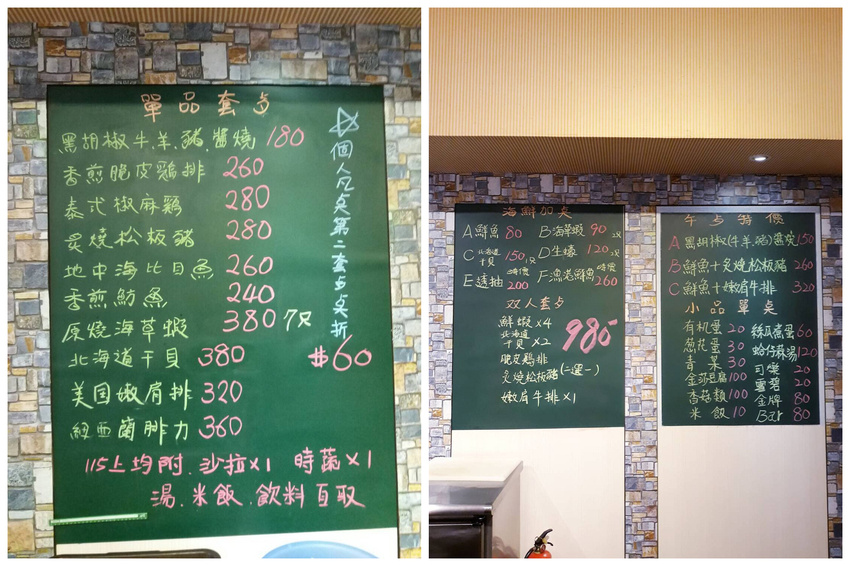 單品套歺
黑胡椒牛.羊.豬醬燒 180
香煎脆皮鶏排 260
泰式椒麻鶏 280
炙燒松板豬 280
地中海比目魚 260
香煎魴魚 240
原燒海草蝦 380 7只
北海道干貝 380
美国嫩肩排 320
紐西蘭腓力 360
個人凡桌第二套歺桌折
#60
以上均附.沙拉x1 時蔬x1
湯.米飯.飲料自取
海鮮加桌
A鮮魚 80 B海草蝦 90 2只
C北海道干貝 150 只 D生蠔 120 2只
E透抽 時價 200 F漁港鮮魚 時價 260
双人套歺
鮮蝦x4
北海道干貝x2
脆皮鶏排
炙燒松板豬(二選一)
嫩肩牛排x1
980
午歺特價
A黑胡椒(牛.羊.豬)醬燒 150
B鮮魚+炙燒松板豬 260
C鮮魚+嫩肩牛排 320
小品單桌
有机蛋 20 絲瓜蒸蛋 60
葱花蛋 30 蛤仔蒜湯 120
青菜 30 可樂 20
金莎豆腐 100 雪碧 20
香菇類 100 金牌 80
米飯 10 Bar 80